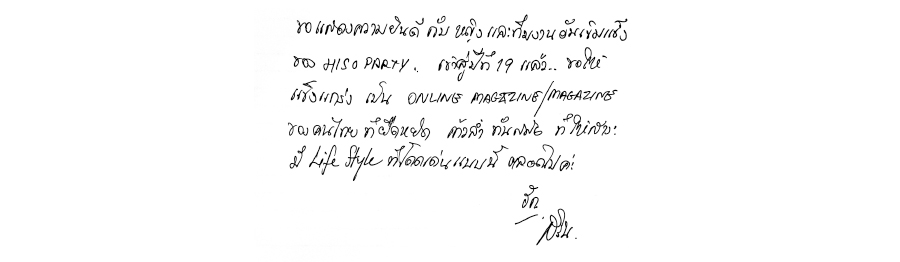 ขอแสดงความยินดี กับ หญิง และทีมงานอันเข้มแข็ง
ของ HISO PARTY. เข้าสู่ปีที่ 19 แล้ว.. ขอให้
แข็งแกร่ง เป็น ONLINE MAGAZINE/MAGAZINE
ของคนไทย ที่ยืดหยัด ก้าวล้ำ ทันสมัย ที่
มี Life Style ที่โดดเด่นแบบนี้ ตลอดไปค่ะ
รัก.